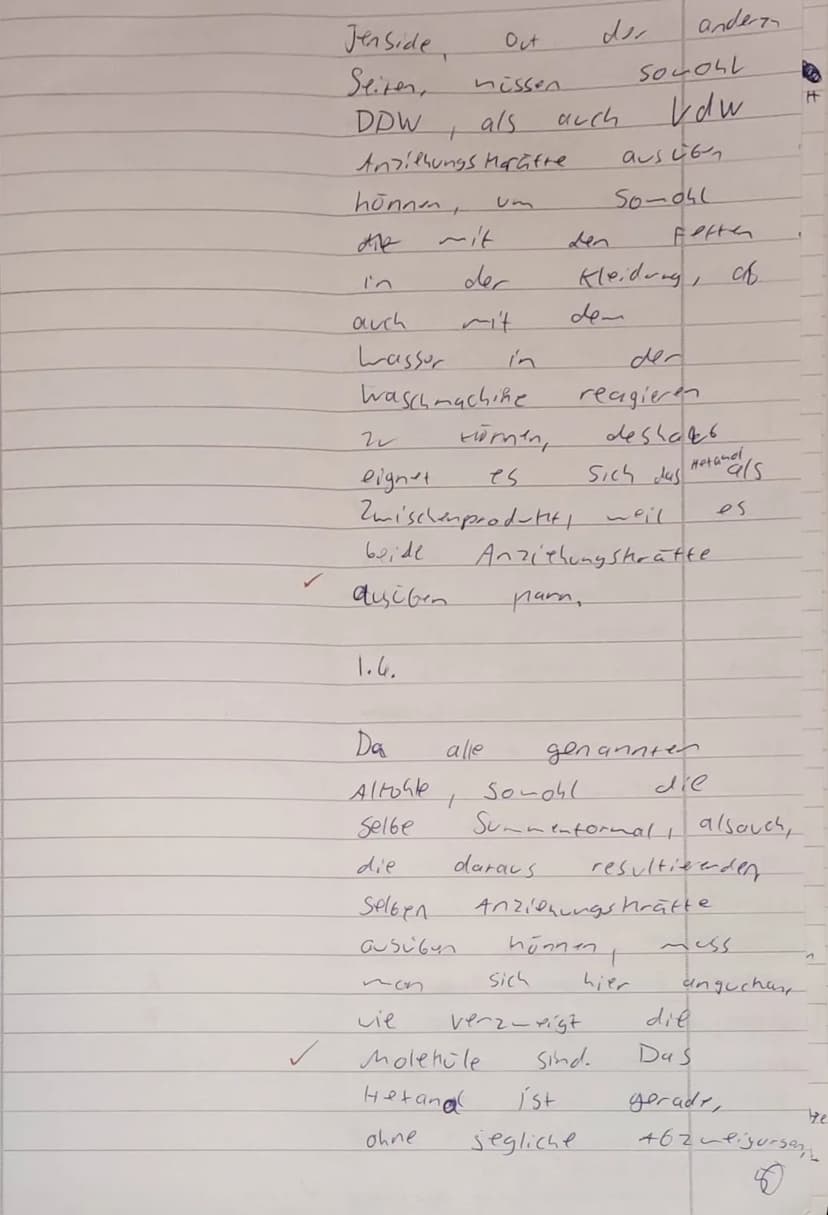 Tenside, Auf der andern
Seiten, müssen sowohl
DDW, als auch VdW
Anziehungskräfte ausüben
können, um sowohl
mit den Fetten
in der Kleidung, als
auch mit dem
Wasser in der
Waschmachine reagieren
zu können, deshalb
eignet es sich das Hexanol als
Zwischenprodukt, weil es
beide Anziehungskräfte
ausüben kann.
1.4.
Da alle genannten
Alkohle, sowohl die
selbe Summenformal, alsauch,
die daraus resultierenden
selben Anziehungskräfte
ausüben können, muss
man sich hier anguchen,
wie verzweigt die
Moleküle sind. Das
Hexanol ist gerade,
ohne jegliche Abzweigungen,